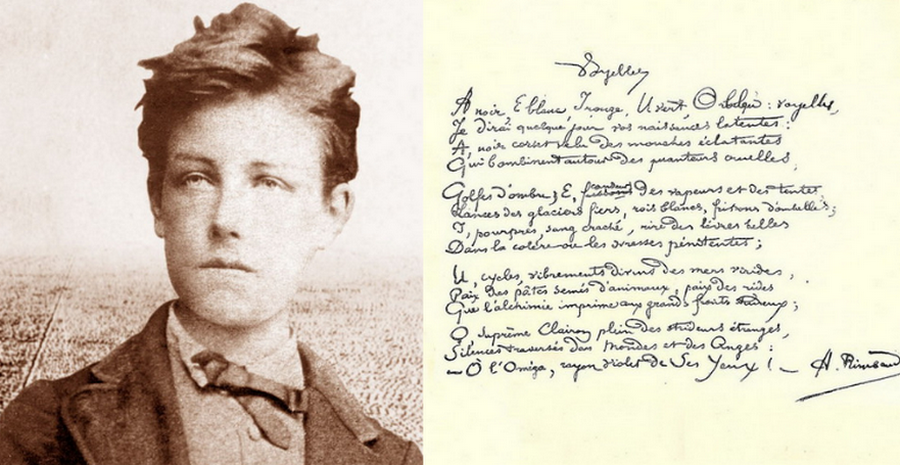 Voyelles
A noir, E blanc, I rouge, U vert, O bleu : voyelles,
Je dirai quelque jour vos naissances latentes :
A, noir corset velu des mouches éclatantes
Qui bombinent autour des puanteurs cruelles,
Golfes d'ombre ; E, candeurs des vapeurs et des tentes,
Lances des glaciers fiers, rois blancs, frissons d'ombelles ;
I, pourpres, sang craché, rire des lèvres belles
Dans la colère ou les ivresses pénitentes ;
U, cycles, vibrements divins des mers virides,
Paix des pâtis semés d'animaux, paix des rides
Que l'alchimie imprime aux grands fronts studieux ;
O, Suprême Clairon plein des strideurs étranges,
Silences traversés des Mondes et des Anges :
— O l'Oméga, rayon violet de Ses Yeux ! — A. Rimbaud